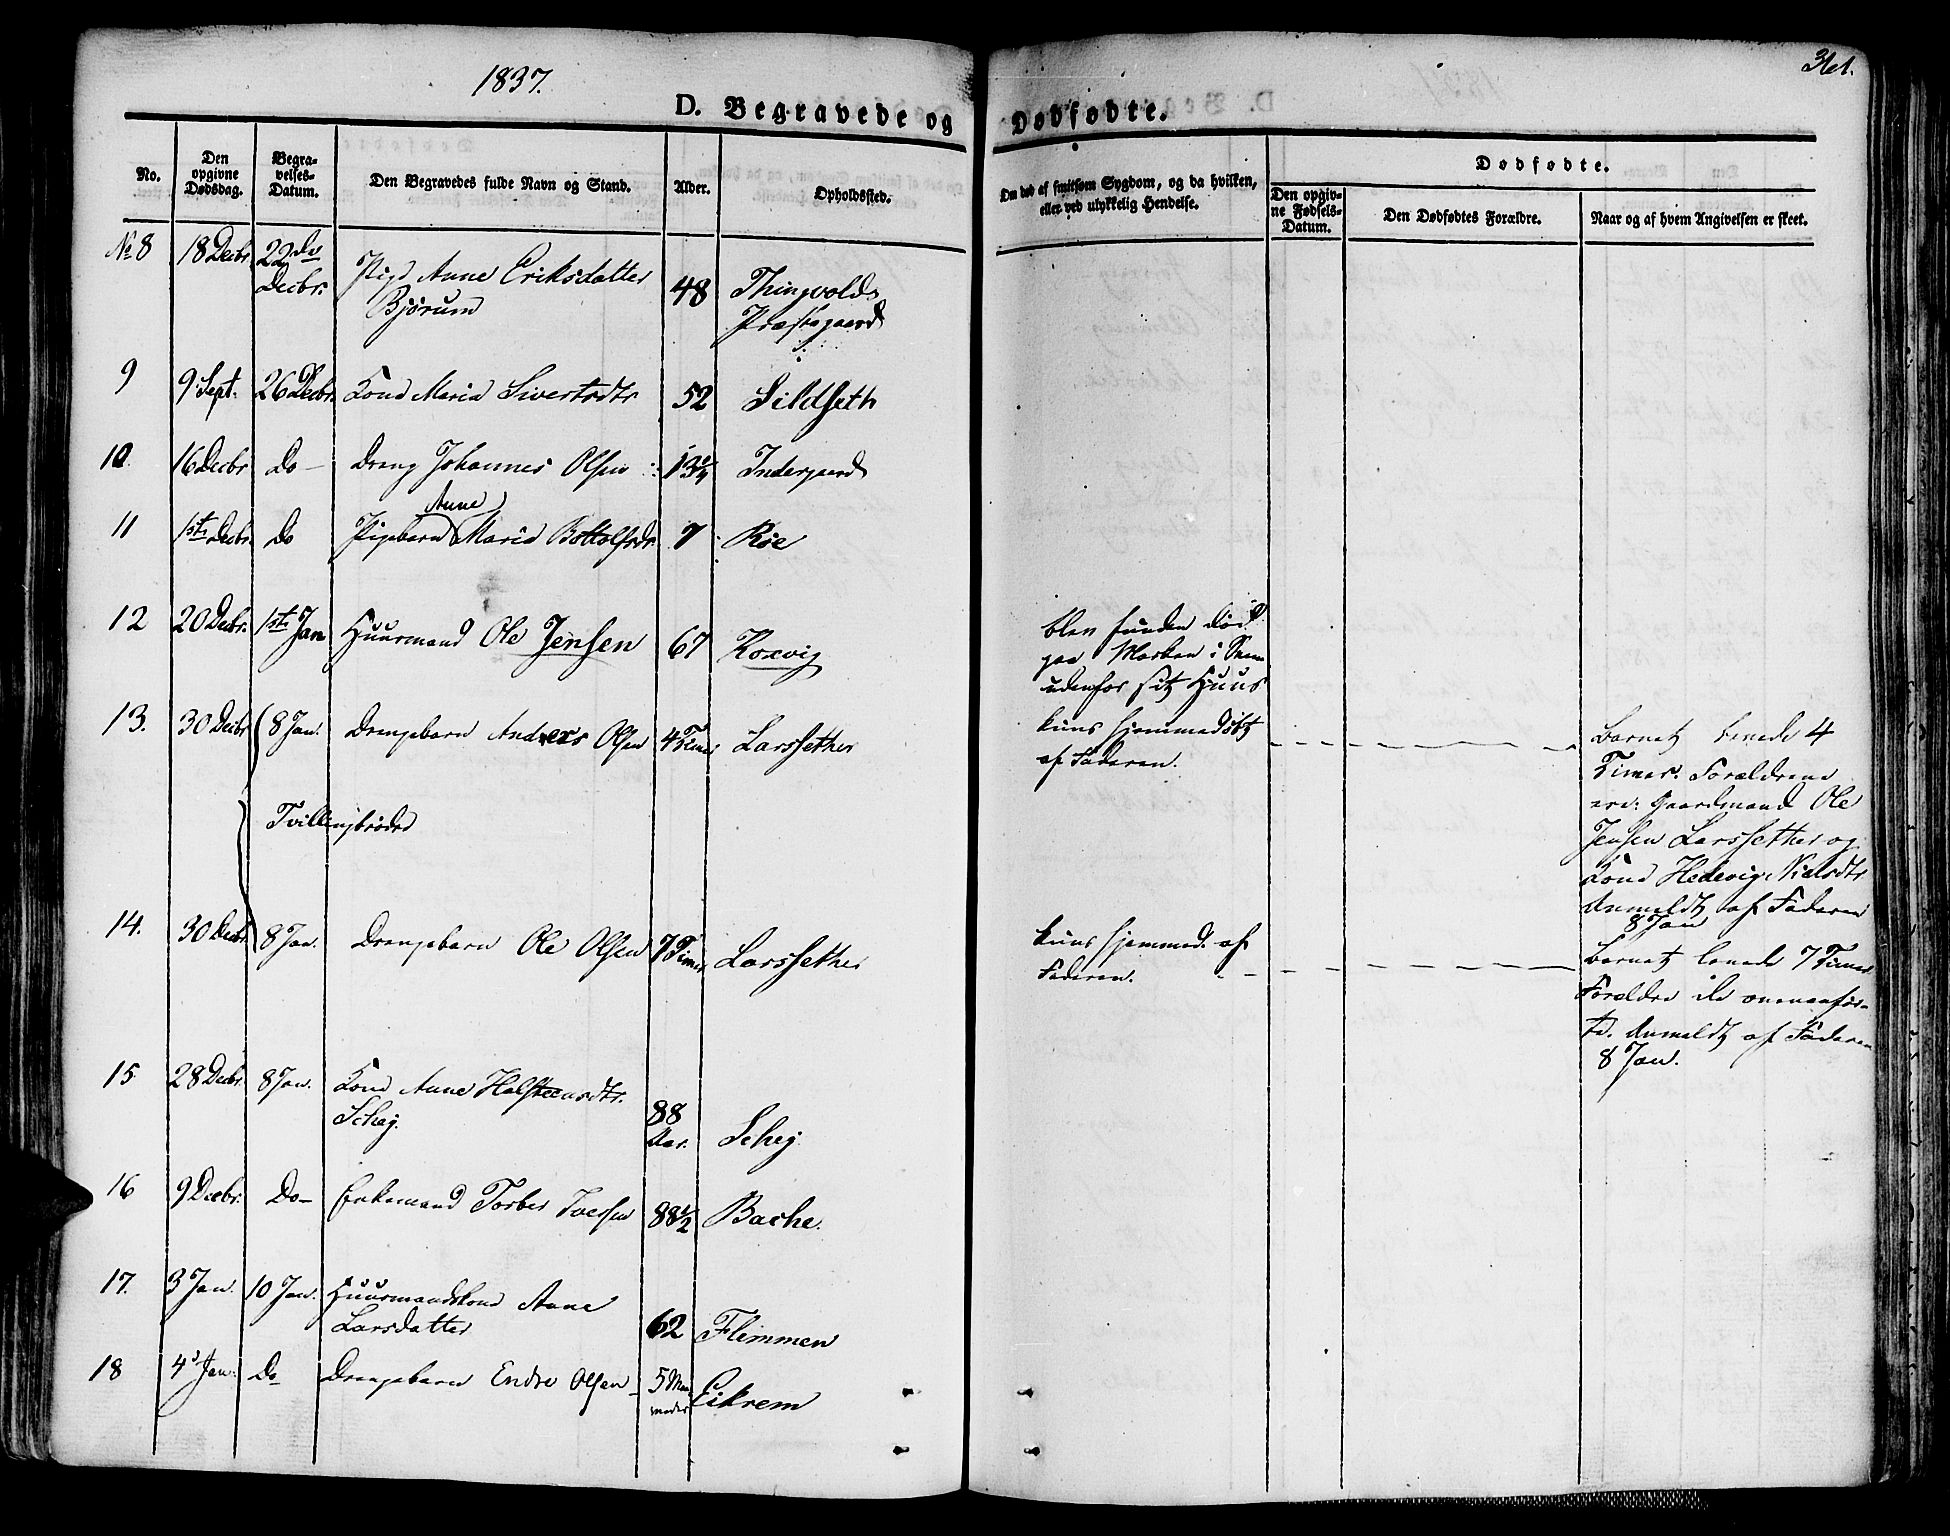 1837.
361.
D. Begravede og Dødfødte.
No.
Den opgivne Dødsdag.
Begravelses-Datum.
Den Begravedes fulde Navn og Stand.
Alder.
Opholdssted.
Om død af smitsom Sygdom, og da hvilken,
eller ved ulykkelig Hendelse.
Dødfødte.
Den opgivne Fødsels-Datum.
Den Dødfødtes Forældre.
Naar og af hvem Angivelsen er skeet.
No 8 18 Decbr 22de Decbr. Pige Anne Eriksdatter
Bjørum 48 Thingvolds
Præstegaard
9 9 Sept. 26 Decbr. Kone Maria Sivertsdtr 52 Sildseth
10. 16 Decbr Do Dreng Johannes Olsen 13 Indergaard
11 1ste Decbr. Do Pigebarn Anne Maria Bottolfsdr. 7 Røe
12 20 Decbr. 1ste Jan Huusmand Ole Jensen 67 Koxvig
blev funden død
paa Marken i Snee
udenfor sit Huus
13. 30 Decbr 8 Jan. Drengebarn Anders Olsen 4 Timer Larssether
kuns hjemmedøbt
af Faderen.
Barnet levede 4
Timer. Forældrene
ere: Gaardmand Ole
Jensen Larssether og
Kone Hedevig Nielsdtr
Anmeldt af Faderen
8 Jan
Tvillingbrødre
14. 30 Decbr. 8 Jan. Drengebarn Ole Olsen 7 Timer Larssether
kuns hjemmed. af
Faderen.
Barnet levede 7 Timer
Forældre de ovenanfør-
te. Anmeldt af Faderen
8 Jan.
15 28 Decbr. 8 Jan. Kone Anne Halsteensdtr.
Schej. 88 Aar. Schej
16 9 Decbr. Do Enkemand Torber Iversen 88½ Bache.
17. 3 Jan. 10 Jan. Huusmandskone Anne
Larsdatter 62 Flemmen
18 4 Jan. Do Drengebarn Endre Olsen 5 Maaneder Eikrem